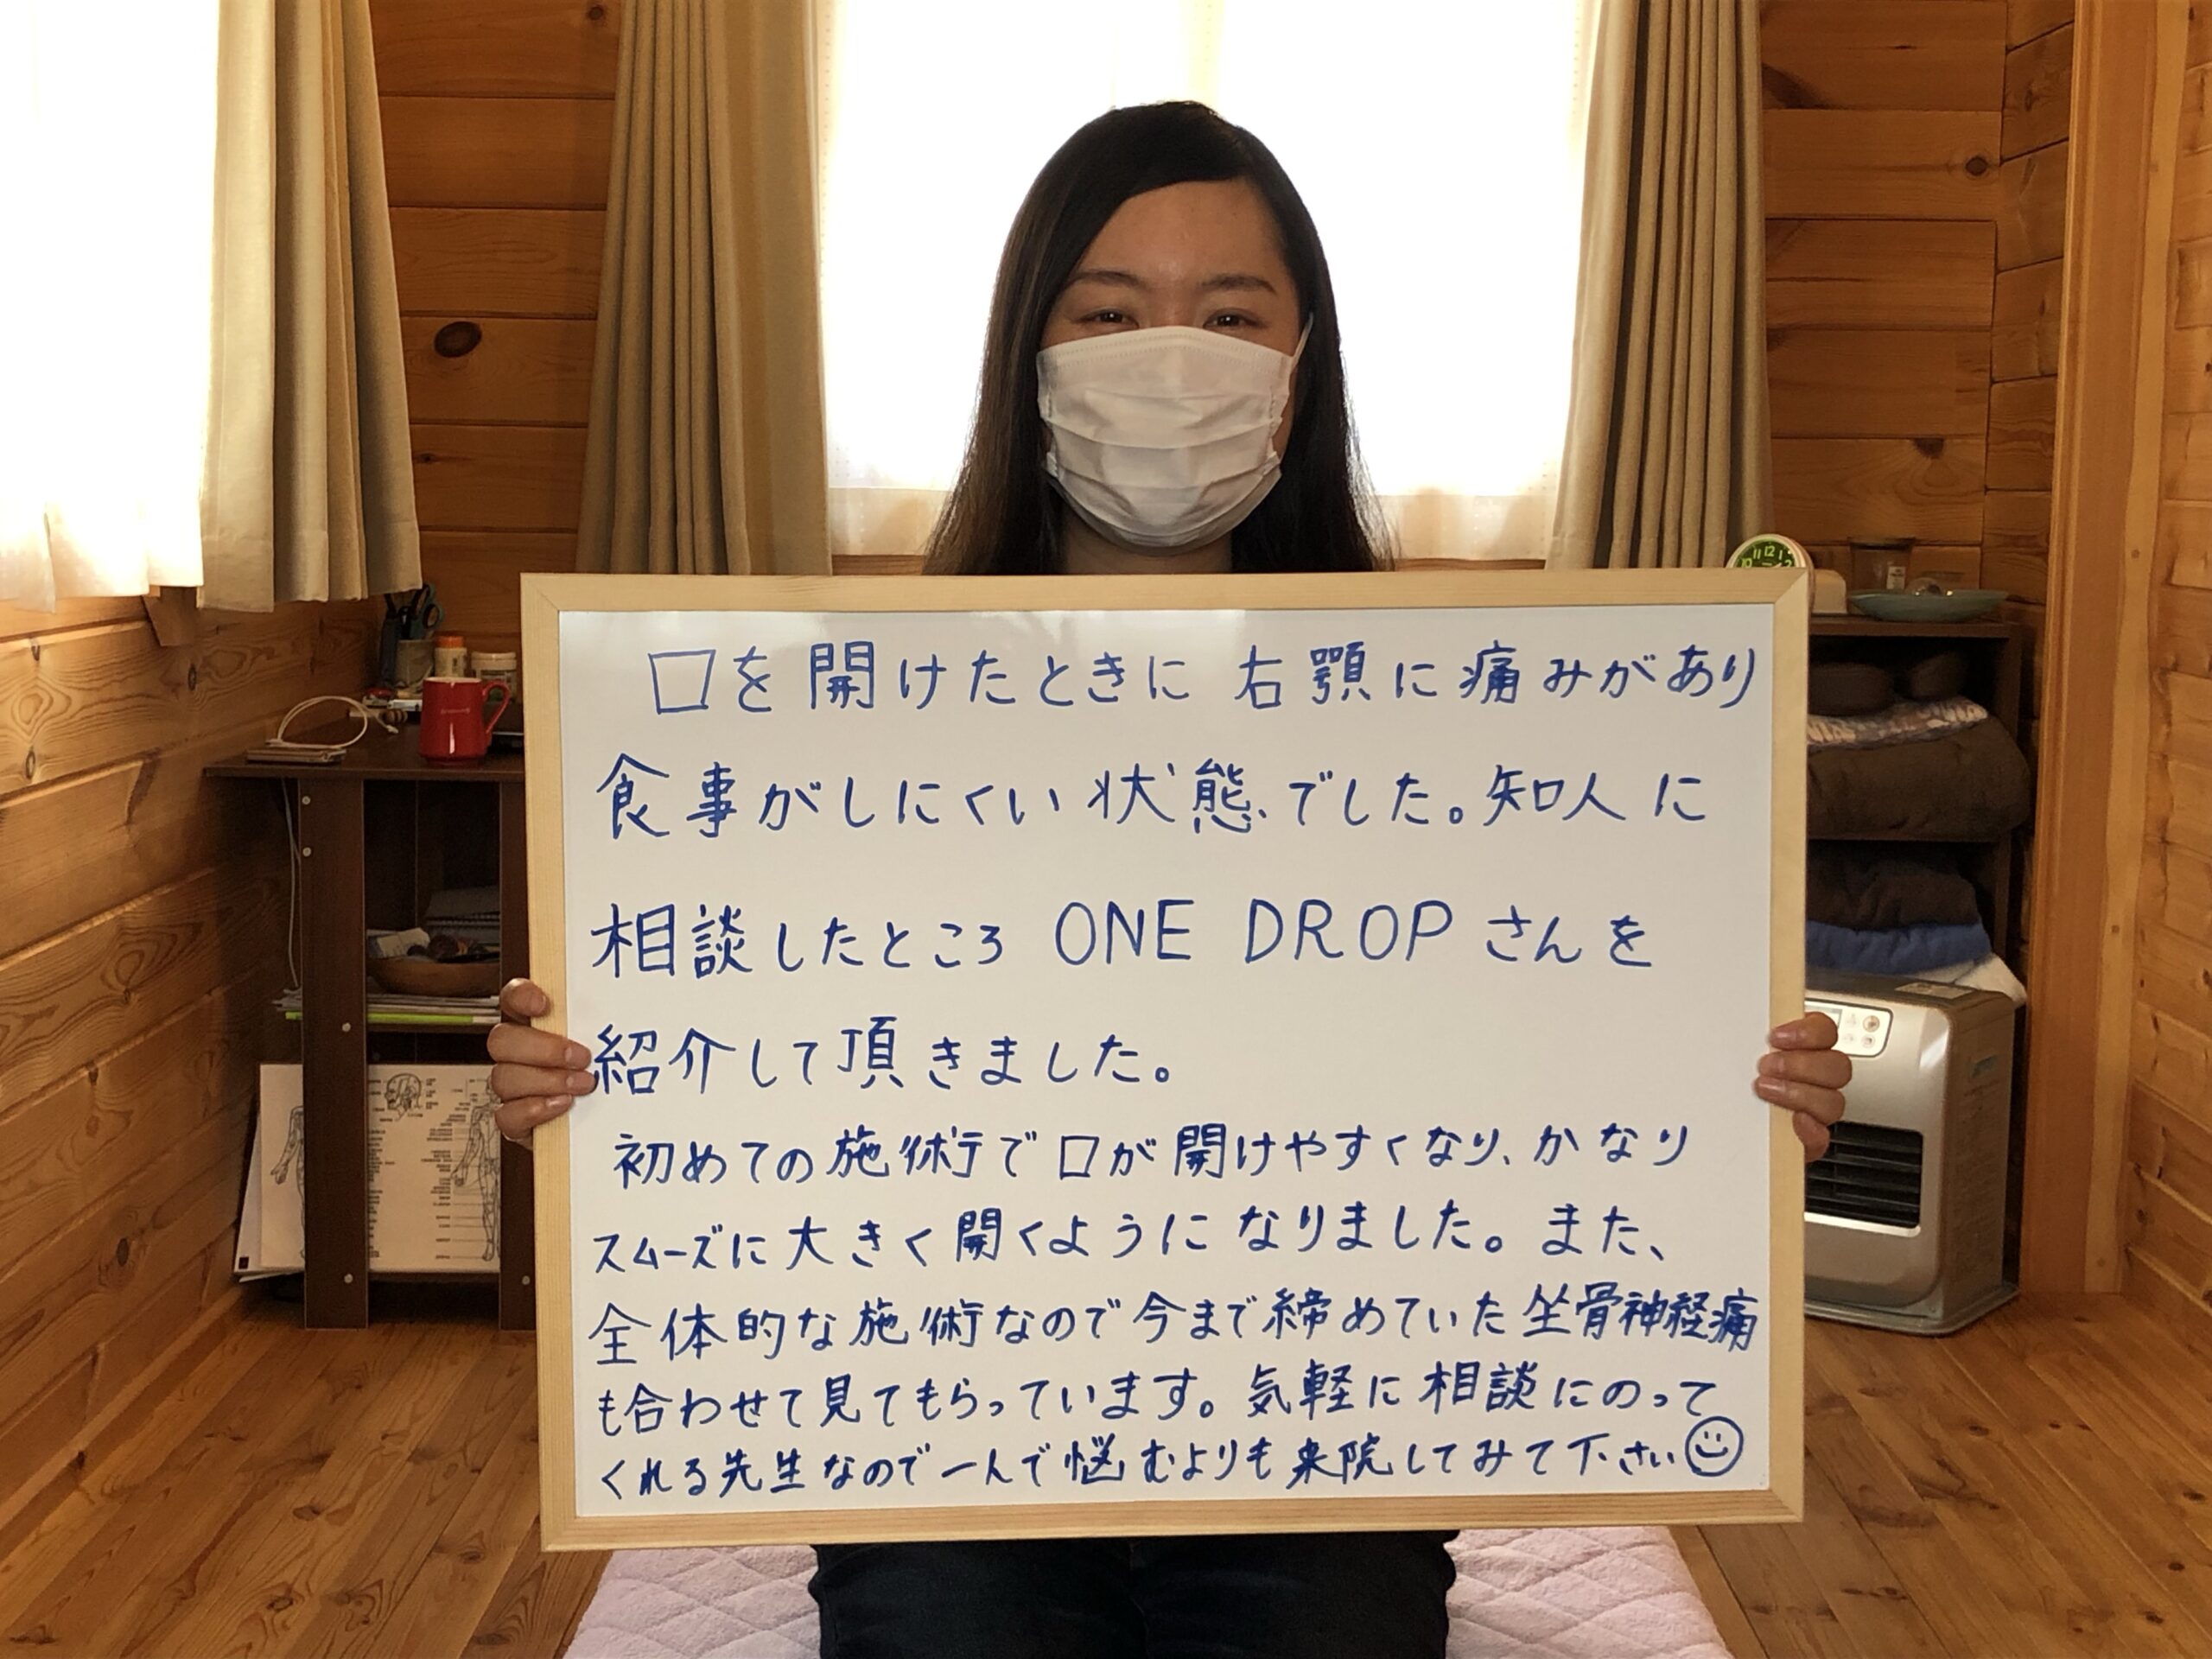 口を開けたときに右顎に痛みがあり
食事がしにくい状態でした。知人に
相談したところ ONE DROP さんを
紹介して頂きました。
初めての施術で口が開けやすくなり、かなり
スムーズに大きく開くようになりました。また、
全体的な施術なので今まで締めていた坐骨神経痛
も合わせて見てもらっています。気軽に相談にのって
くれる先生なので一人で悩むよりも来院してみて下さい